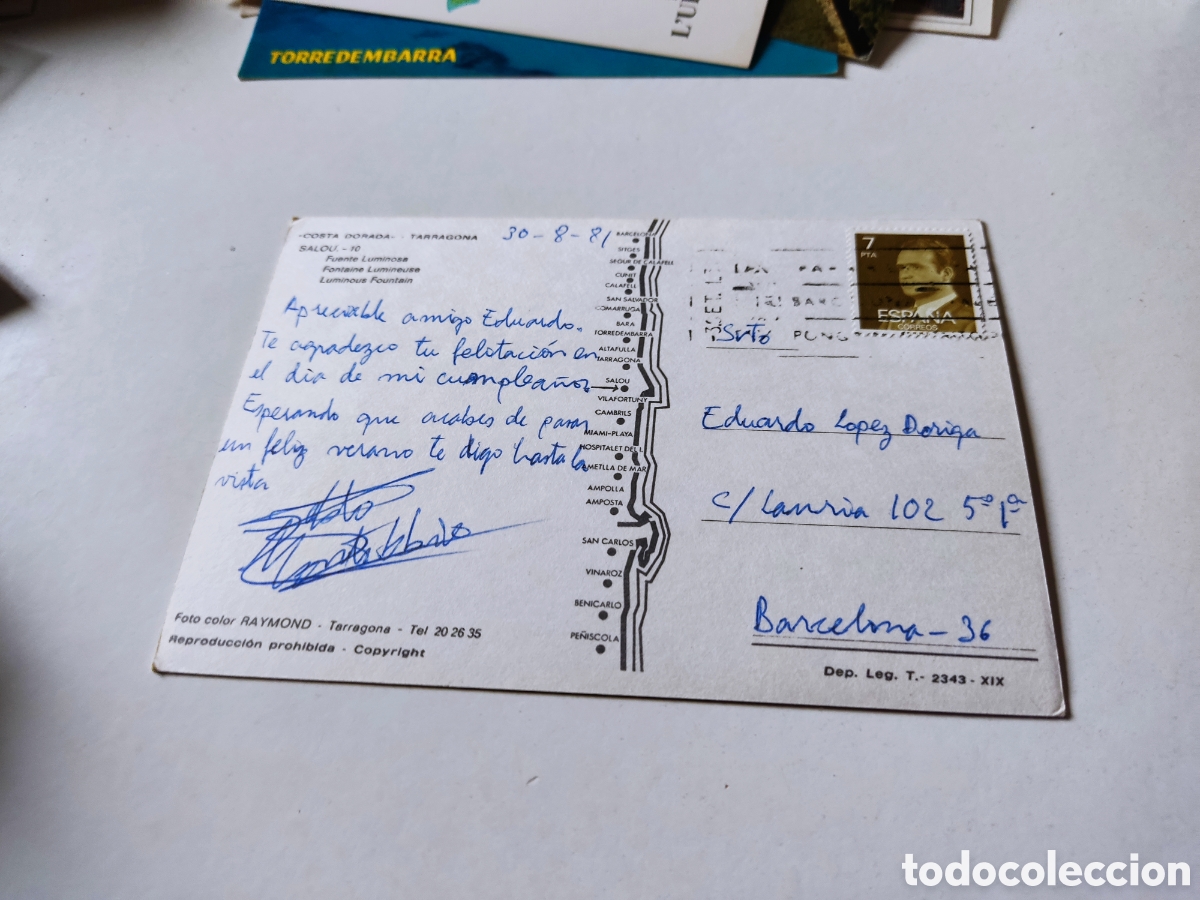 L'U
TORREDEMBARRA
«COSTA DORADA» - TARRAGONA
SALOU. - 10
Fuente Luminosa
Fontaine Lumineuse
Luminous Fountain
30-8-81
Apreciable amigo Eduardo.
Te agradezco tu felotación en
el dia de mi cumpleaños
Esperando que acabes de pasar
un feliz verano te digo hasta la
vista
Foto color RAYMOND - Tarragona - Tel 20 26 35
Reproducción prohibida - Copyright
BARCELONA
SITGES
SEGUR DE CALAFELL
CUNIT
CALAFELL
SAN SALVADOR
COMARRUGA
BARA
TORREDEMBARRA
ALTAFULLA
TARRAGONA
SALOU
VILAFORTUNY
CAMBRILS
MIAMI-PLAYA
HOSPITALET DEL I.
AMETLLA DE MAR
AMPOLLA
AMPOSTA
SAN CARLOS
VINAROZ
BENICARLO
PEÑISCOLA
7
PTA
ESPAÑA
CORREOS
BARC
Srto
Eduardo Lopez Doriga
C/ Lauria 102 5º 1ª
Barcelona - 36
Dep. Leg. T.- 2343 - XIX
todocoleccion